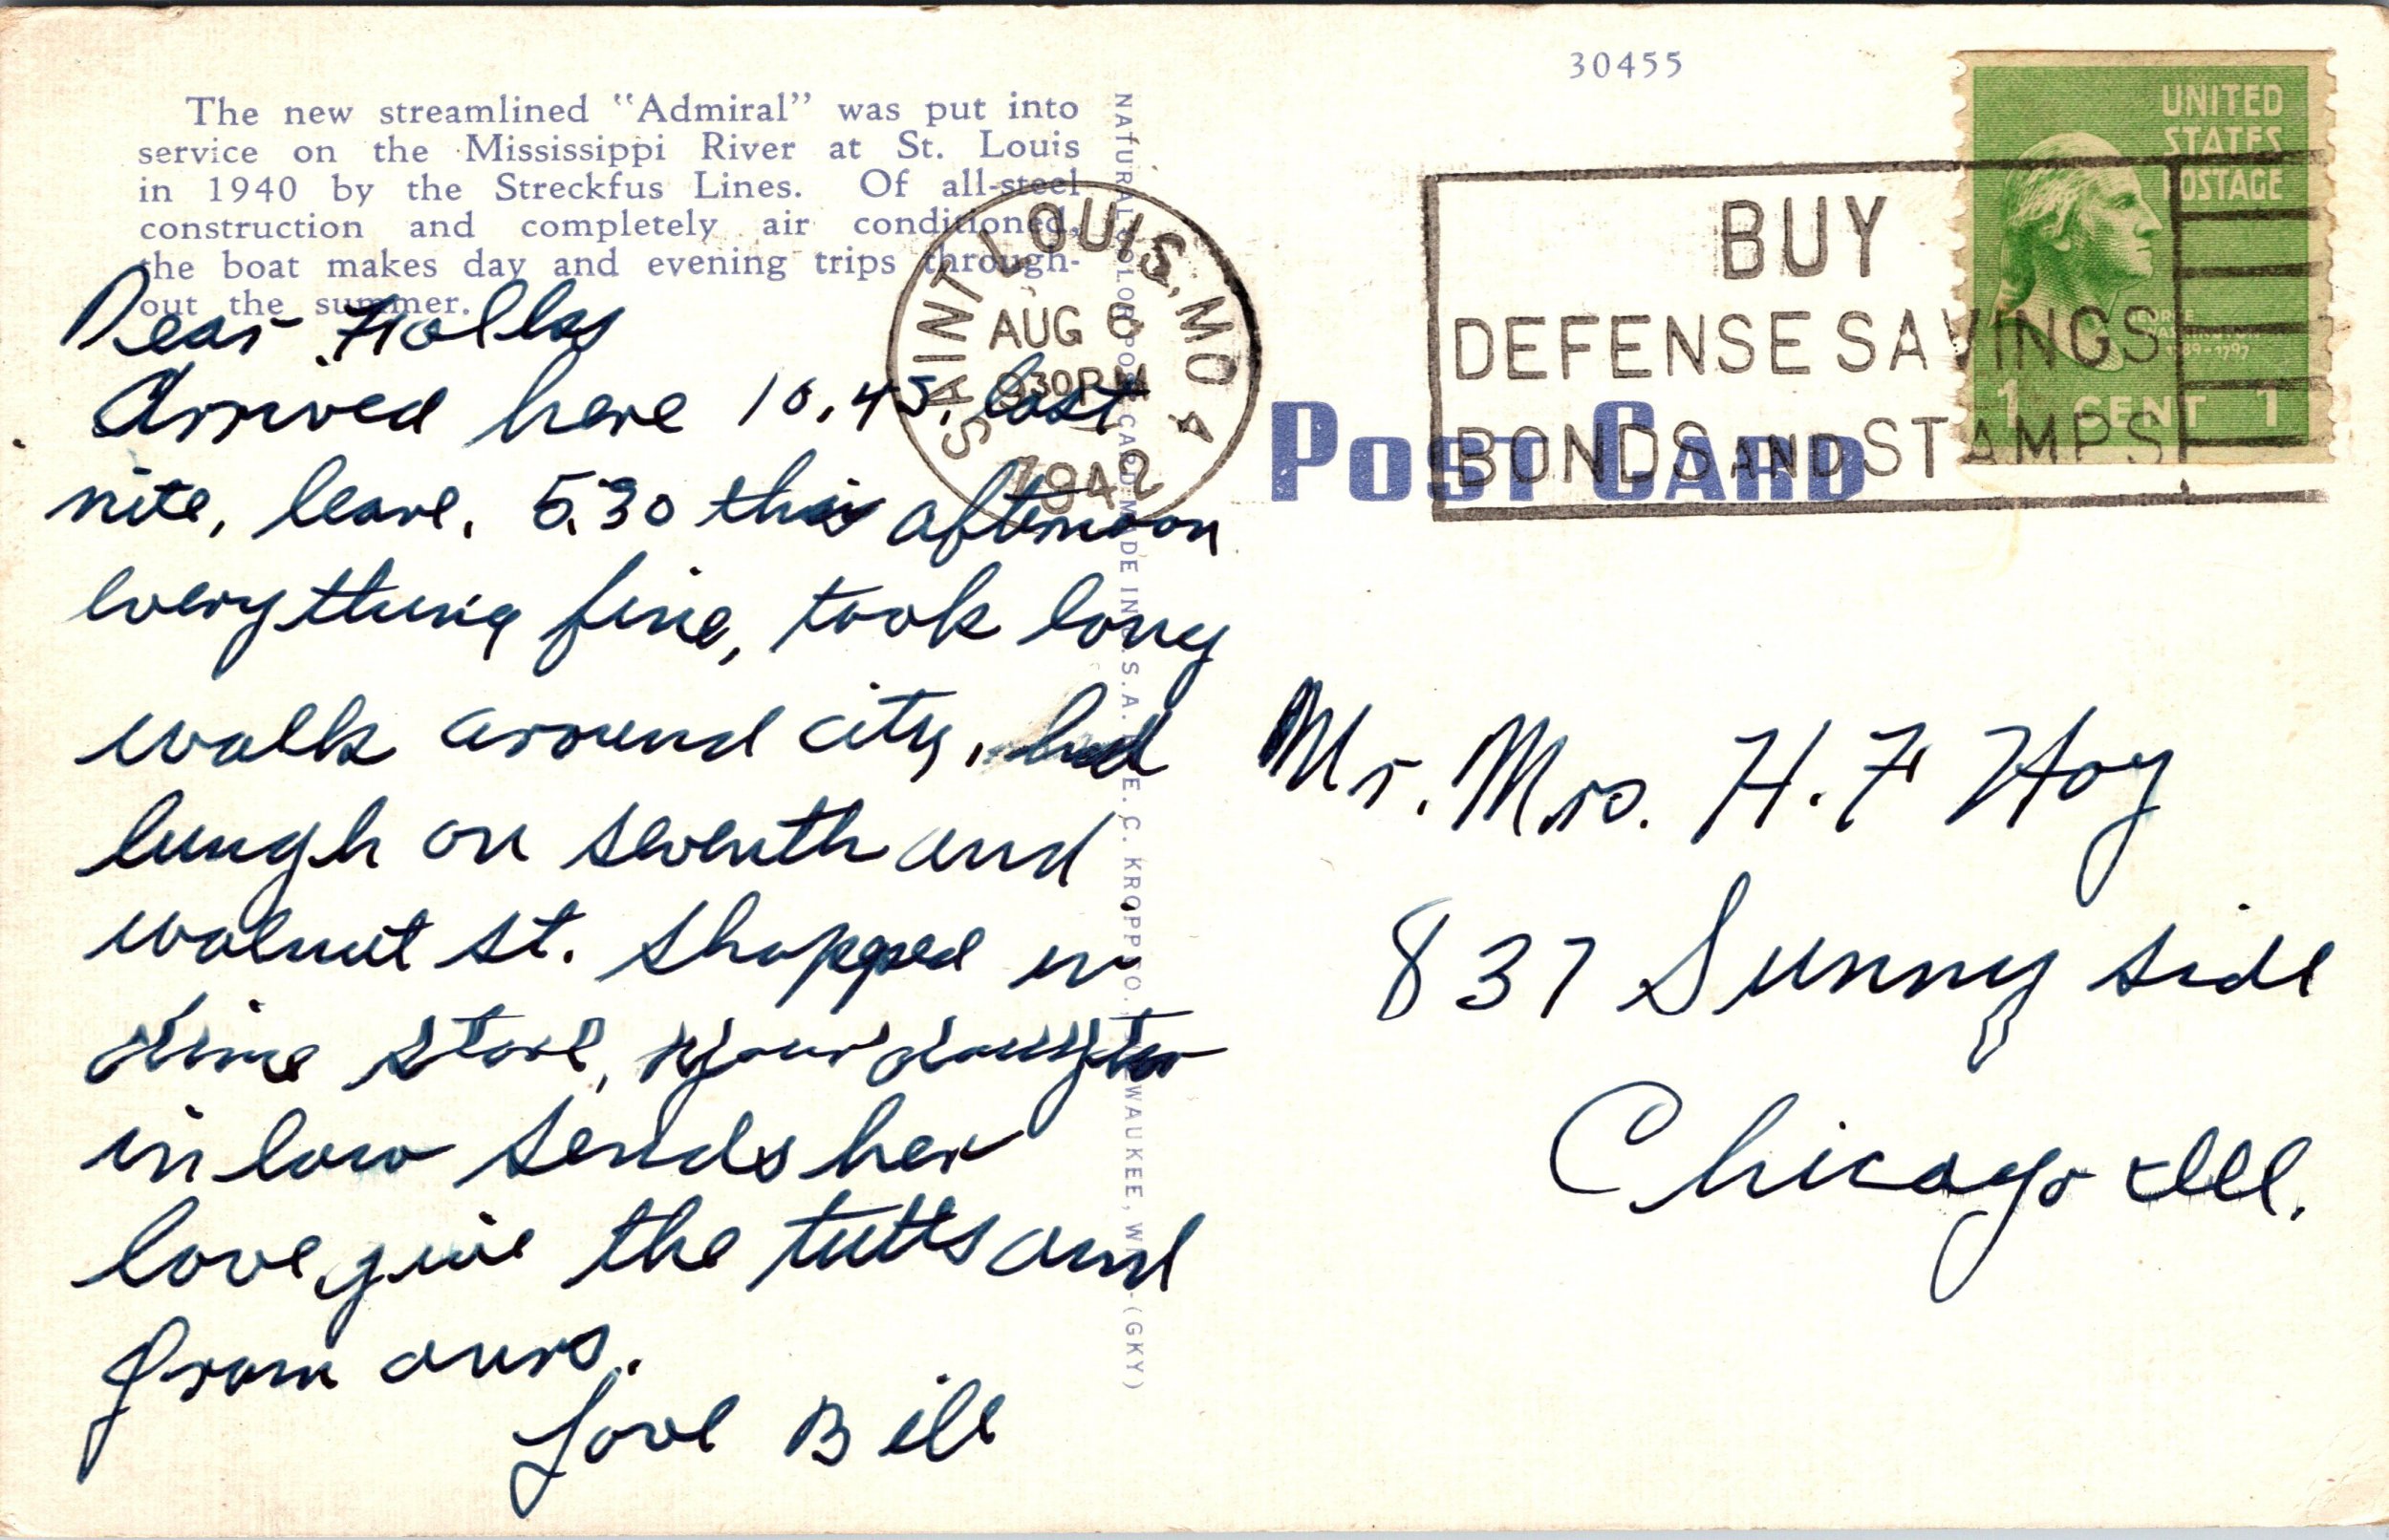 30455
The new streamlined "Admiral" was put into
service on the Mississippi River at St. Louis
in 1940 by the Streckfus Lines. Of all-steel
construction and completely air conditioned,
the boat makes day and evening trips through-
out the summer.
Dear Folks
Arrived here 10.45. last
nite, leave. 5.30 this afternoon
everything fine, took long
walk around city, had
lungh on seventh and
walnut st. Shopped in
dime store, your daughter
in law sends her
love, give the tutts and
from ours.
Love Bill
NATURAL COLOR POST CARD MADE IN U.S.A. BY E. C. KROPP CO. MILWAUKEE, WIS.-(GKY)
SAINT LOUIS, MO 4
AUG 6
930 PM
1942
BUY
DEFENSE SAVINGS
BONDS AND STAMPS
UNITED
STATES
POSTAGE
GEORGE
WASHINGTON
1789-1797
1 CENT 1
POST CARD
Mr. Mrs. H. F Hoy
837 Sunny side
Chicago Ill.